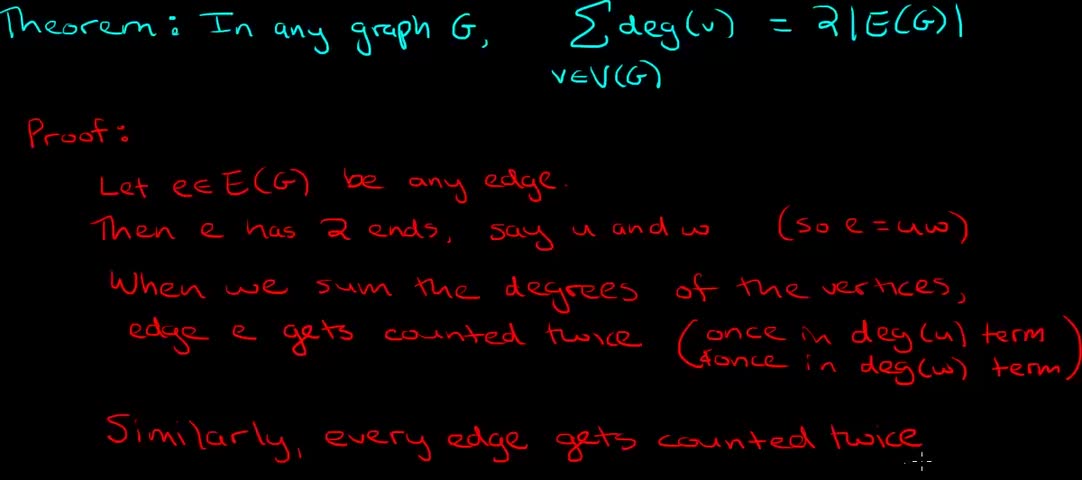 Theorem: In any graph G, ∑ deg(v) = 2|E(G)|
v∈V(G)
Proof:
Let e∈E(G) be any edge.
Then e has 2 ends, say u and w (so e=uw)
When we sum the degrees of the vertices,
edge e gets counted twice (once in deg(u) term
&once in deg(w) term)
Similarly, every edge gets counted twice